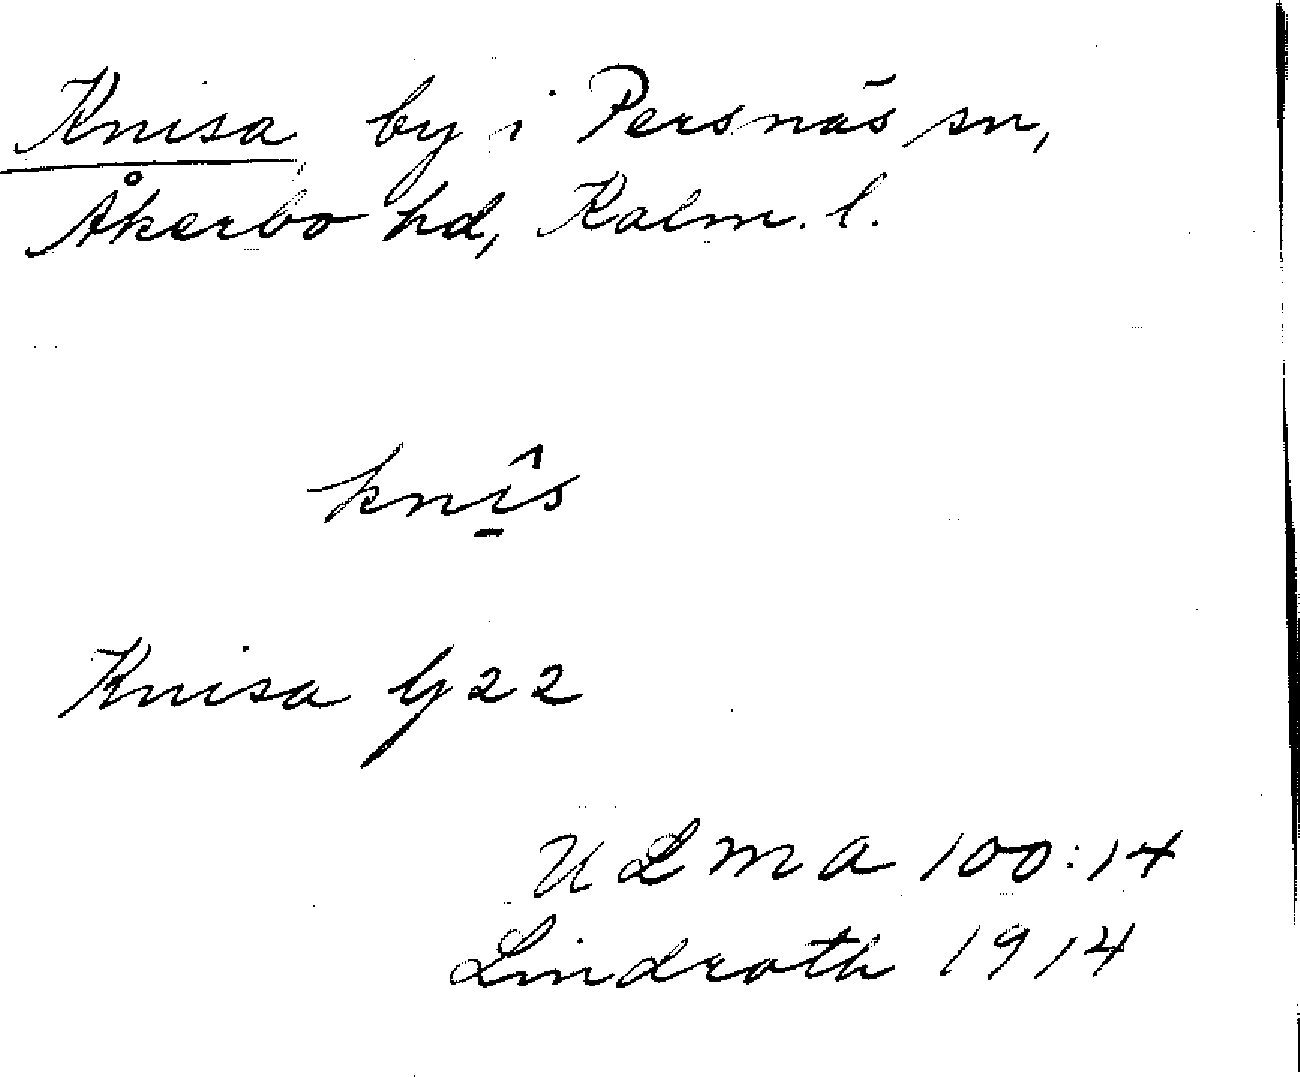 Knisa by i Persnäs sn,
Åkerbo hd, Kalm. l.
knîs
Knisa G 22
ULMA 100:14
Lindroth 1914